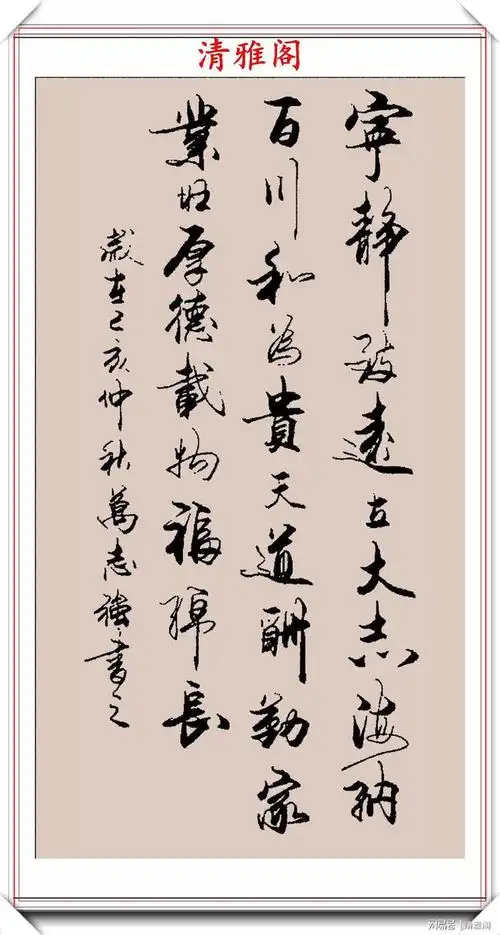 清雅阁
寧静致遠立大志海納
百川和為貴天道酬勤家
業旺厚德載物福綿長
歲在己亥仲秋萬志強書之
网易号 | 清雅阁